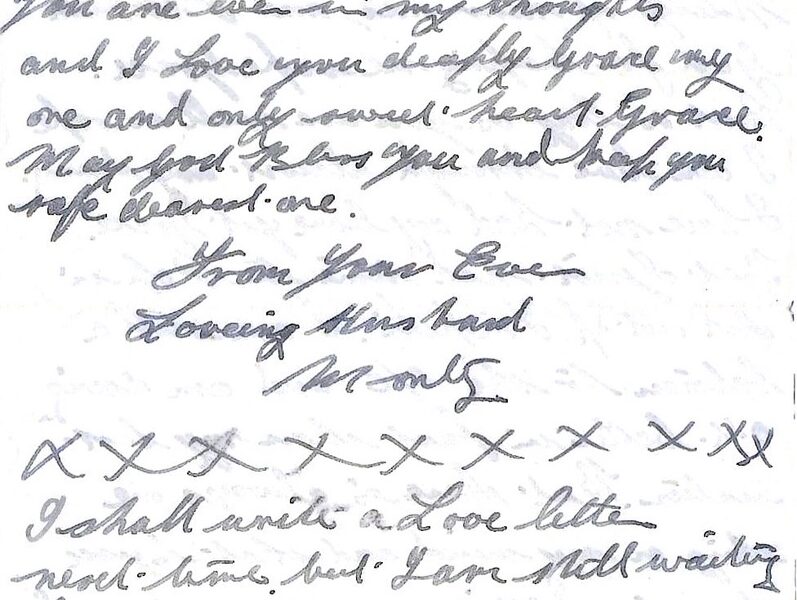 You are ever in my thoughts
and I Love you deeply Grace my
one and only sweet heart Grace.
May God Bless You and keep you
safe dearest one.
From Your Ever
Loveing Husband
Monty
X X X X X X X X X X
I shall write a Love letter
next time but I am still waiting